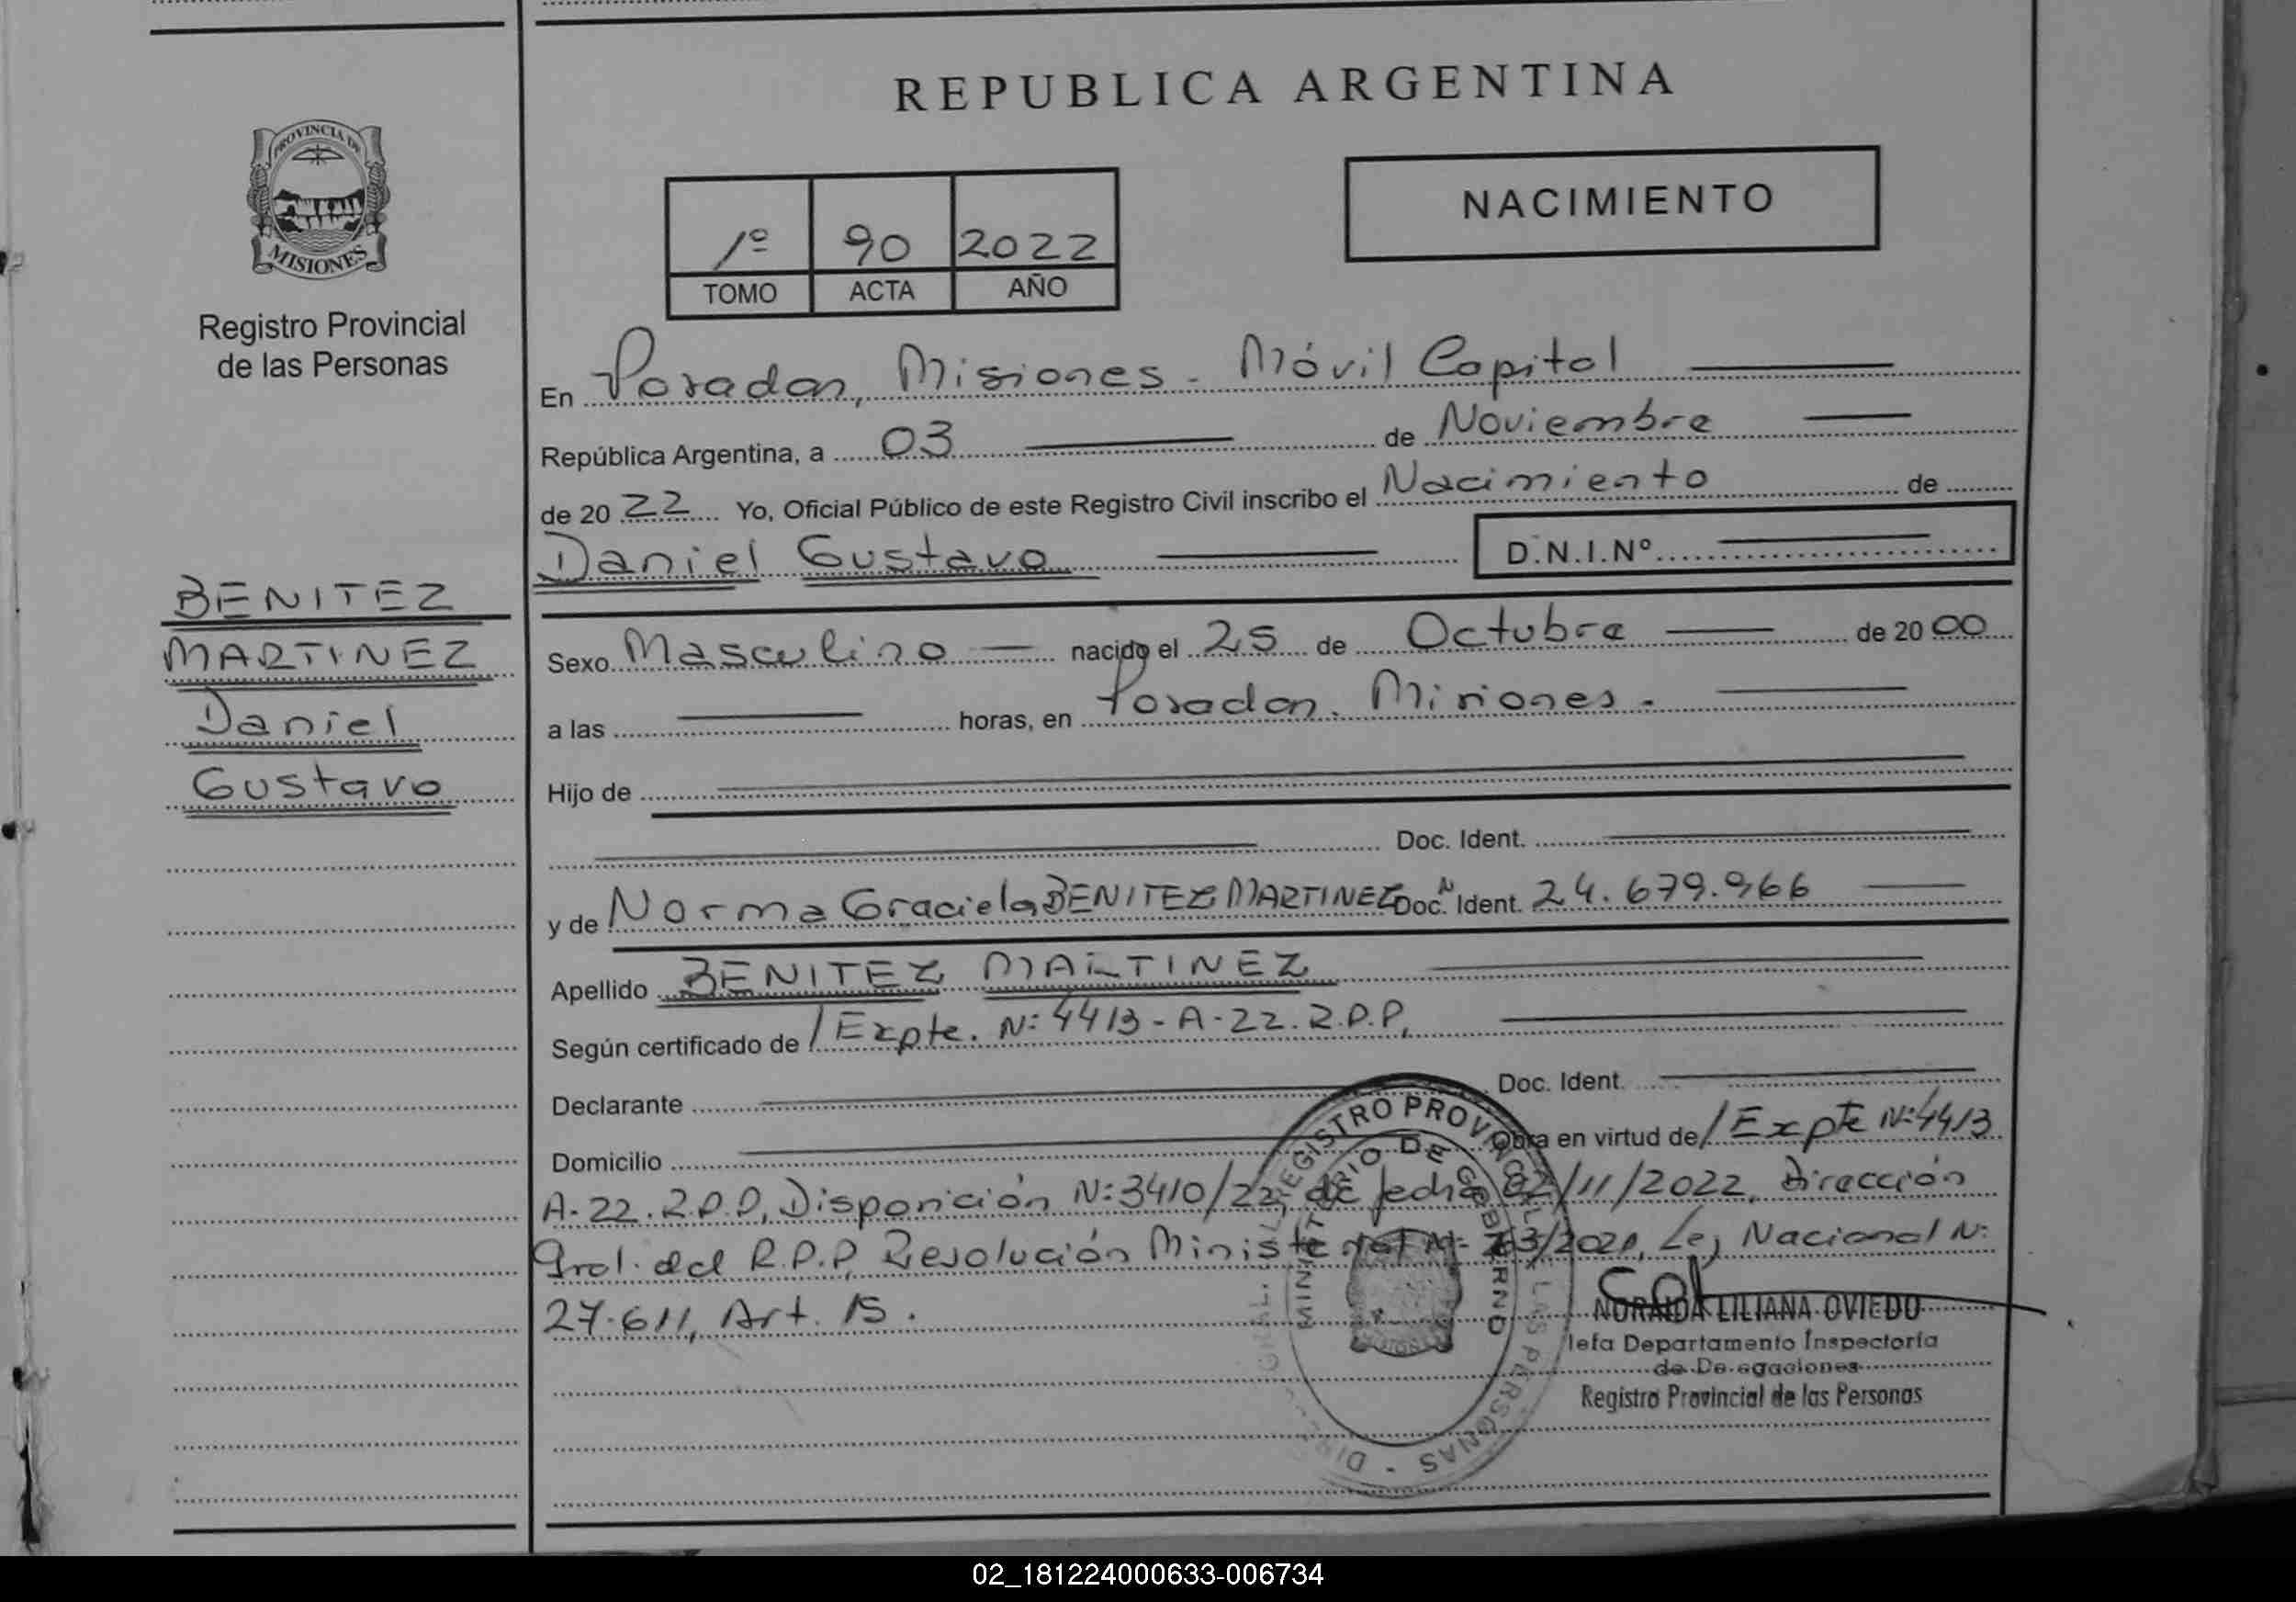 REPUBLICA ARGENTINA
PROVINCIA DE
MISIONES
Registro Provincial
de las Personas
NACIMIENTO
1º 90 2022
TOMO ACTA AÑO
En Posadas, Misiones - Móvil Capital
República Argentina, a 03 de Noviembre
de 20 22 Yo, Oficial Público de este Registro Civil inscribo el Nacimiento de
Daniel Gustavo D.N.I.Nº
BENITEZ
MARTINEZ
Daniel
Gustavo
Sexo Masculino nacido el 25 de Octubre de 20 00
a las horas, en Posadas. Misiones.-
Hijo de
Doc. Ident.
y de Norma Graciela BENITEZ MARTINEZ Doc. Ident. N 24.679.966
Apellido BENITEZ MARTINEZ
Según certificado de / Expte. N: 4413-A-22.R.P.P,
Declarante Doc. Ident.
Domicilio Obra en virtud de / Expte N:4413
A-22.R.P.P, Disposición N:3410/22, de fecha 02/11/2022, Dirección
Gral. del R.P.P, Resolución Ministerial /2021, Ley Nacional N:
27.611, Art. 15.
REGISTRO PROVINCIAL LAS PERSONAS
MINISTERIO DE GOBIERNO
NORAIDA LILIANA OVIEDO
Jefa Departamento Inspectoría
de Delegaciones
Registro Provincial de las Personas
02_181224000633-006734